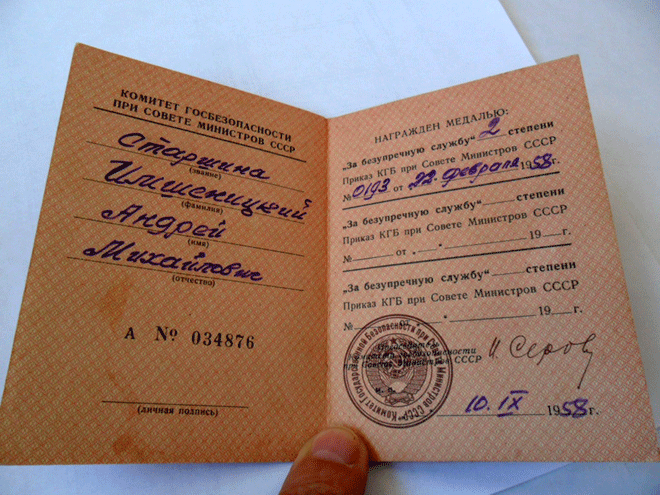 КОМИТЕТ ГОСБЕЗОПАСНОСТИ
ПРИ СОВЕТЕ МИНИСТРОВ СССР
Старшина
(звание)
Имшеницкий
(фамилия)
Андрей
(имя)
Михайлович
(отчество)
А № 034876
(личная подпись)
НАГРАЖДЕН МЕДАЛЬЮ:
„За безупречную службу“ 2 степени
Приказ КГБ при Совете Министров СССР
№ 0193 от 22 февраля 1958 г.
„За безупречную службу“ степени
Приказ КГБ при Совете Министров СССР
№ от 19 г.
„За безупречную службу“ степени
Приказ КГБ при Совете Министров СССР
№ 19 г.
Комитет Государственной Безопасности при Совете Министров СССР
госбезопасности
Министров СССР
И. Серов
10. IX 1958 г.